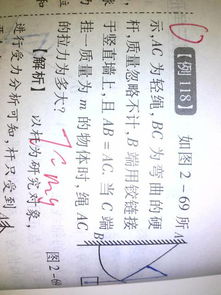 【例118】 如图2-69所
示,AC为轻绳,BC为弯曲的硬
杆,质量忽略不计,B端用铰链接
于竖直墙上,且AB=AC.当C端
挂一质量为m的物体时,绳AC
的拉力为多大?
【解析】 以杆为研究对象,
进行受力分析可知,杆只受到
B
图2-69